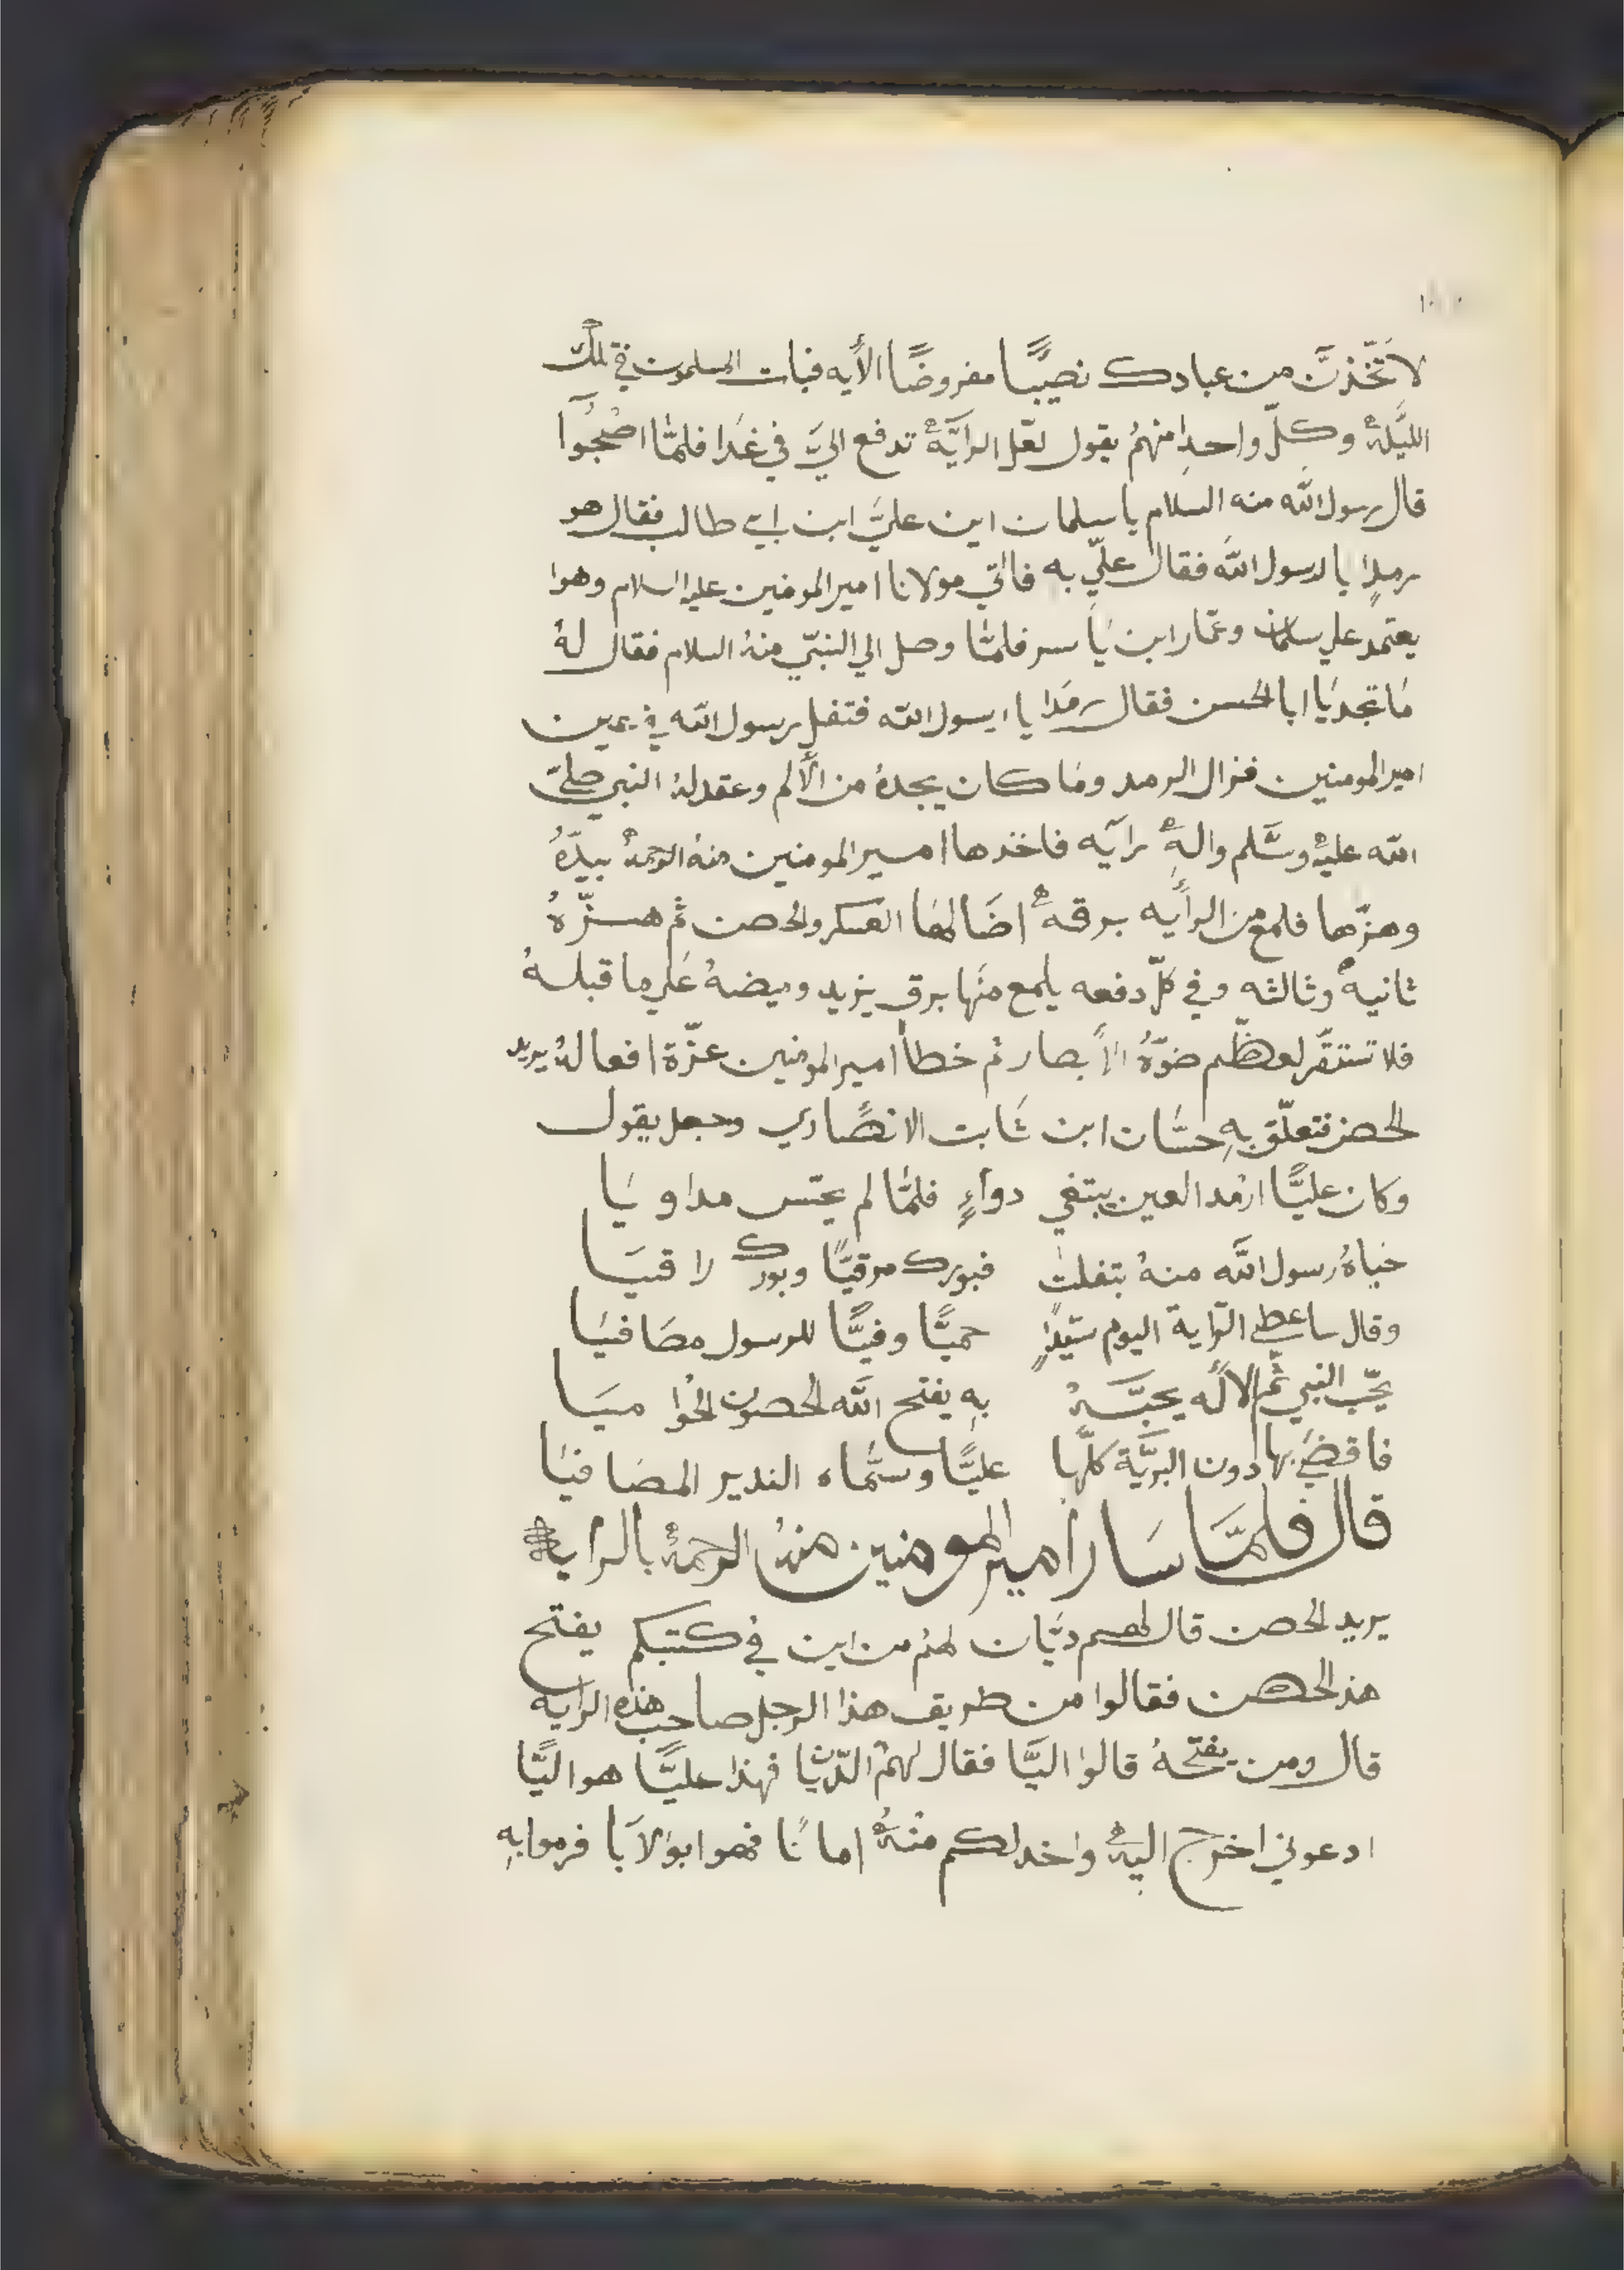 لاتّخذنّ من عبادك نصيبًا مفروضًا الأيه فبات المسلمون في تلك
الليلة وكلّ واحدا منهمُ يقول لعّل الرايّة تدفع اليَّ في غدا فلمّا اصبحُوا
قال رسول اللّه منه السلام يا سلمان اين عليّ ابن ابي طالب فقال هو
رمدٍا يا لرسول اللّه فقال عليّ به فاتي مولانا امير المومنين عليه السلام وهوا
يعتمد علي سلمان وعمّار ابن ياسر فلمّا وصل الي النبّي منهُ السلام فقال لهُ
مَا تجد يَا ابا الحسن فقال رمَدا يا رسول اللّه فتفل رسول اللّه في عين
امير المومنين فزال الرمد ومَا كان يجدهُ من الألم وعقد لهُ النبي صليّ
اللّه عليهُ وسَّلم والهِ رايَه فاخدها امير المومنين منهُ الرحمهُ بيدّهُ
وهزّها فلمع من الرأَيه برقه اضَا لهَا العسكر والحصن ثم هــزّهُ
ثانيه وثالثه وفي كلّ دفعه يلمع منَها برق يزيد وميضهُ عَلي ما قبلهُ
فلا تستقّر لعظّم ضوّهُ الأبصار ثم خطاَ امير المومنين عزّة افعالهُ يريد
الحصن فتعلّق بهِ حسَّان ابن ثَابت الانصَاري وجعل يقول
وكان عليًّا ارمَد العين يبتغي دواءٍ فلمَّا لم يحسّ مداويَا
حَباهُ رسول اللَّه منهُ بتفلت فبورك مرقيًّا وبورك راقيَا
وقال ساعطي الرّاية اليوم سيّدًا حميًّا وفيًّا للرسول مصَافيَا
يحّب النبي ثم الالَه يحبّــهُ بهِ يفتح اللَّه الحصون الخوُاميَا
فاقضيَ بها دون البريَّة كلّها عليًّا وسمَّاه الندير المصَافيَا
قال فلمَّا سَار امير المومنين منهُ الرحمهُ بالرايه
يريد الحصن قال لهم ديَّان لهمُ من اين في كتبكم يفتح
هذ الحصن فقالوا من طريق هذا الرجل صاحب هذه الرايه
قال ومن يفتحهُ قالوا اليًّا فقال لهمُ الدّيَّان فهذا عليًّا هو اليًّا
ادعوني اخرج اليهُ واخد لكم منهُ امانًا فهوا ابوالاَبا فرموا بهِ